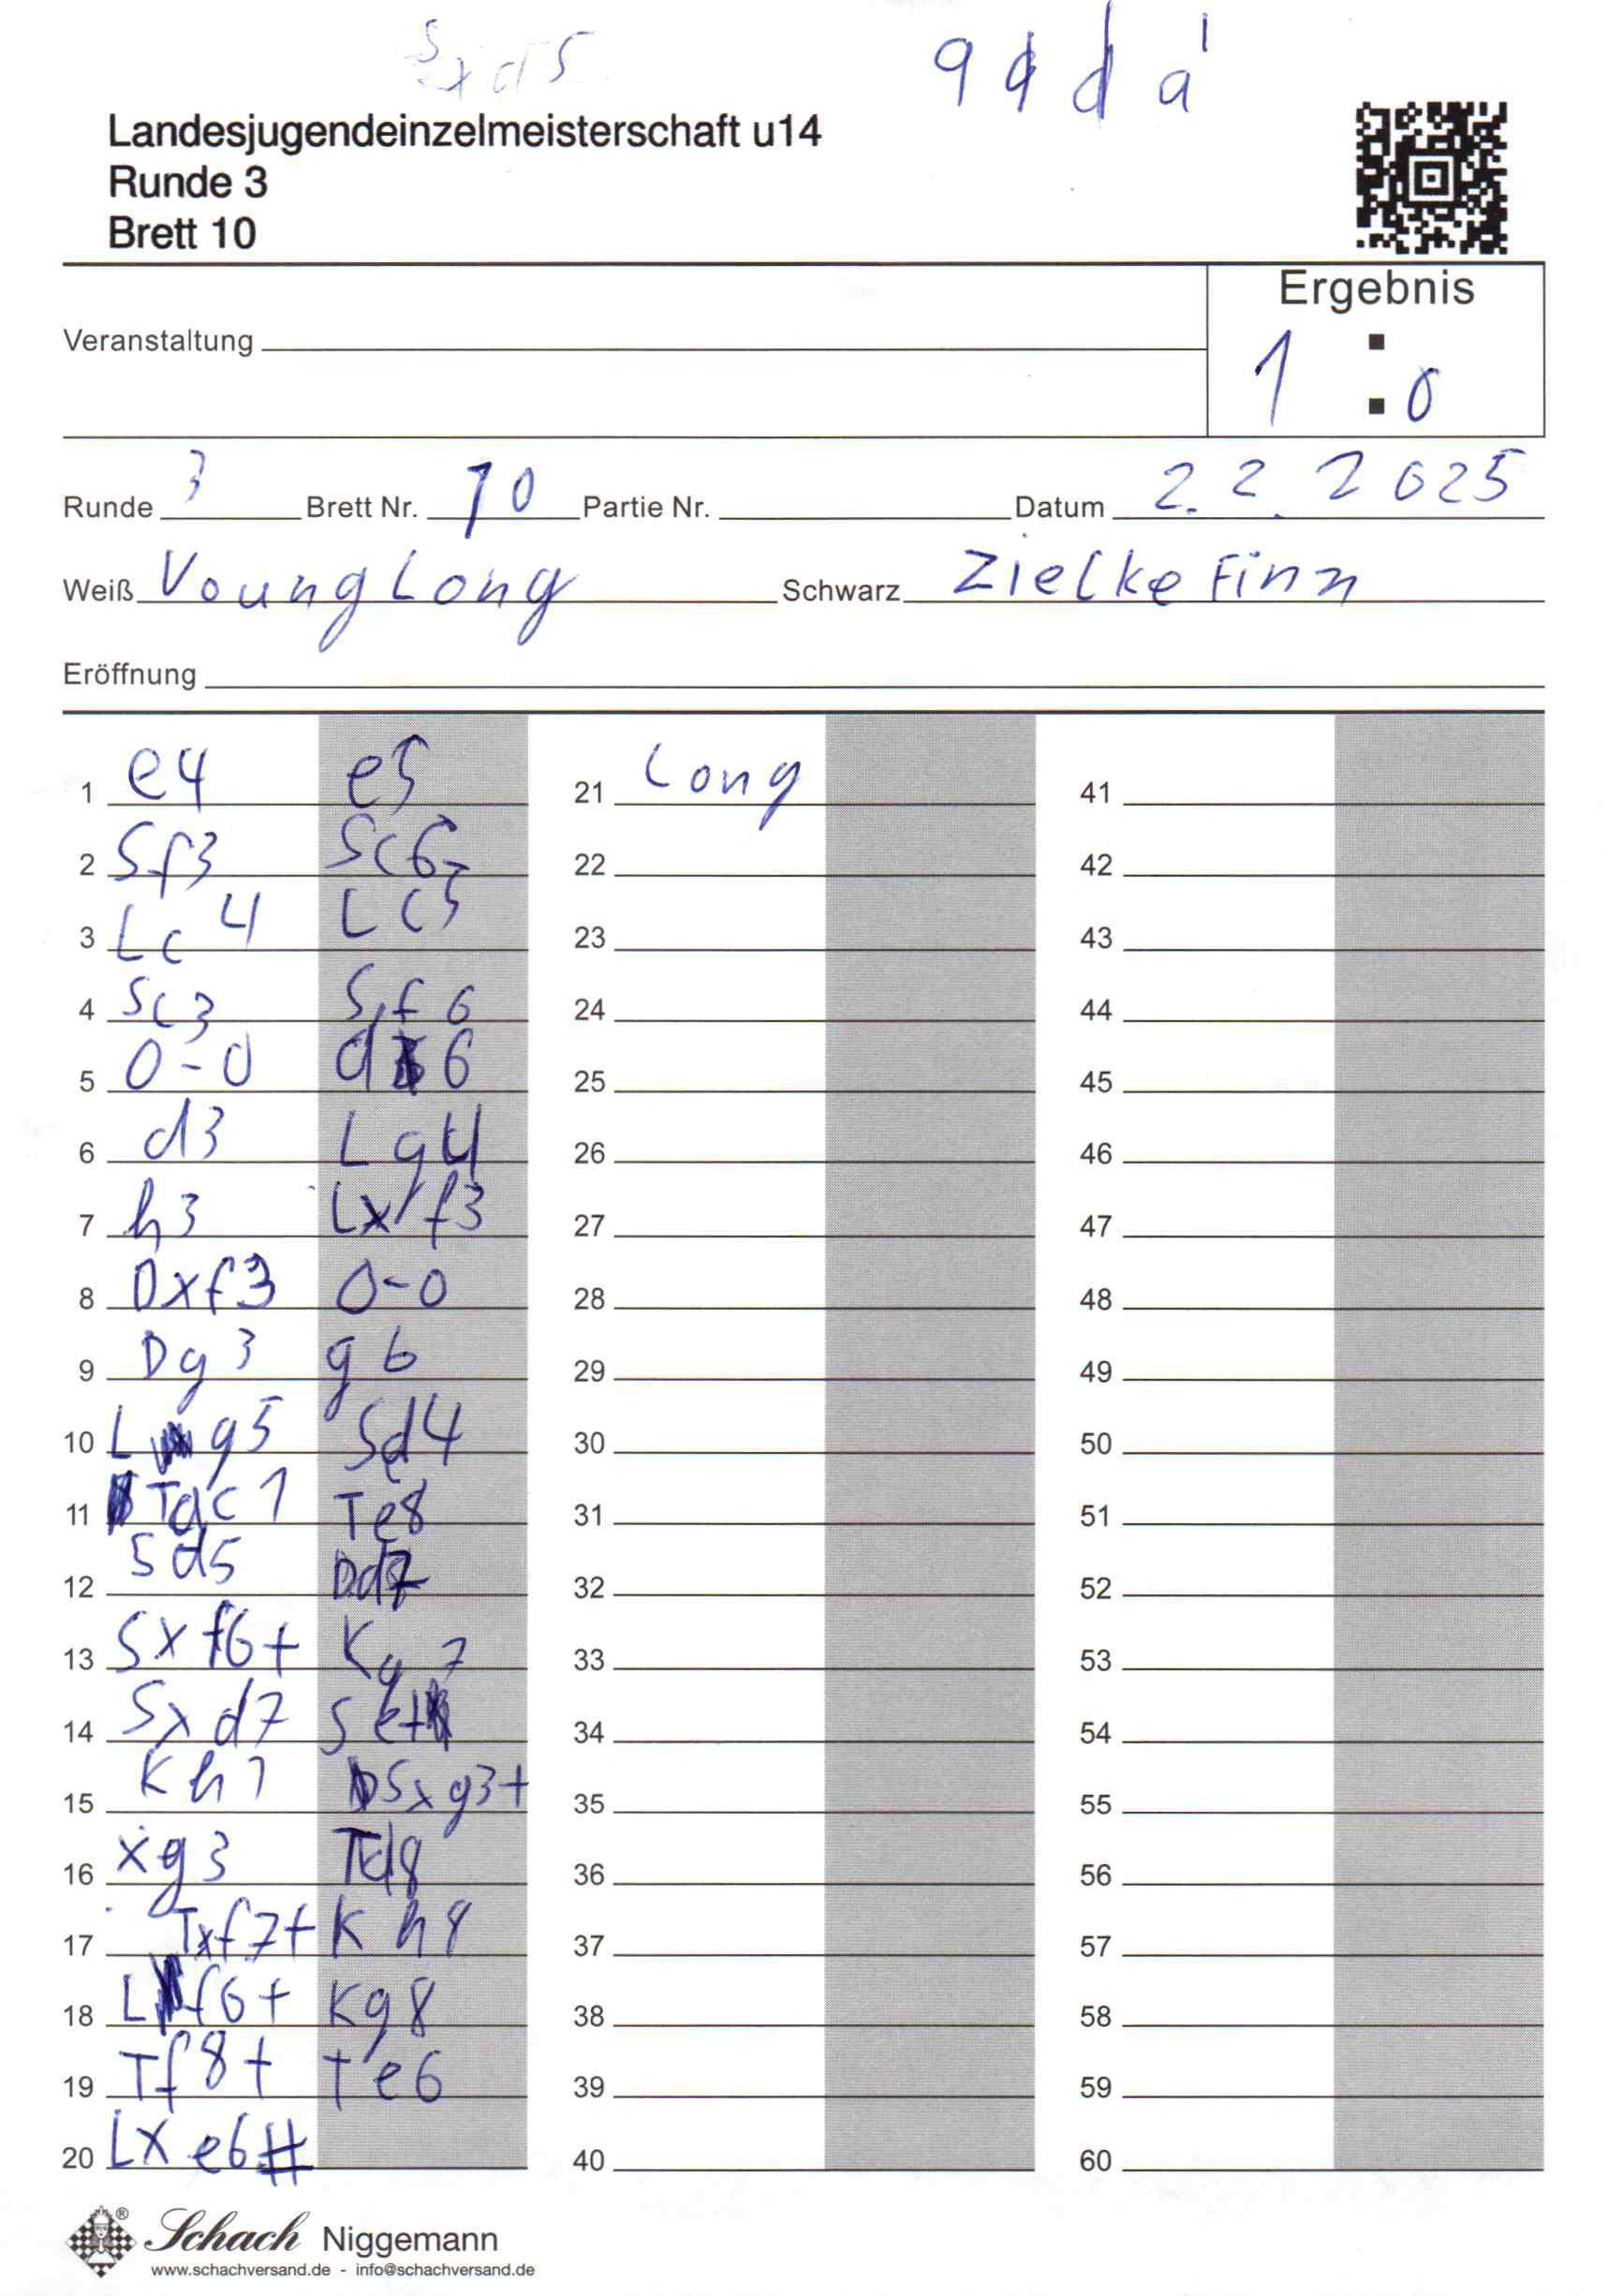 Sxd5
q d d a 1
Landesjugendeinzelmeisterschaft u14
Runde 3
Brett 10
Ergebnis
1 : 0
Veranstaltung
Runde 3 Brett Nr. 10 Partie Nr. Datum 2.2.2025
Weiß Voung Long Schwarz Zielke Finn
Eröffnung
1 e4 e5 21 Long 41
2 Sf3 Sc6 22 42
3 Lc4 Lc5 23 43
4 Sc3 Sf6 24 44
5 0-0 d6 25 45
6 d3 Lg4 26 46
7 h3 Lxf3 27 47
8 Dxf3 0-0 28 48
9 Dg3 g6 29 49
10 Lg5 Sd4 30 50
11 Tac1 Te8 31 51
12 Sd5 Dd7 32 52
13 Sxf6+ Kg7 33 53
14 Sxd7 Se2+ 34 54
15 Kh1 Sxg3+ 35 55
16 xg3 Td8 36 56
17 Txf7+ Kh8 37 57
18 Lf6+ Kg8 38 58
19 Tf8+ Te6 39 59
20 Lxe6# 40 60
Schach Niggemann
www.schachversand.de - info@schachversand.de